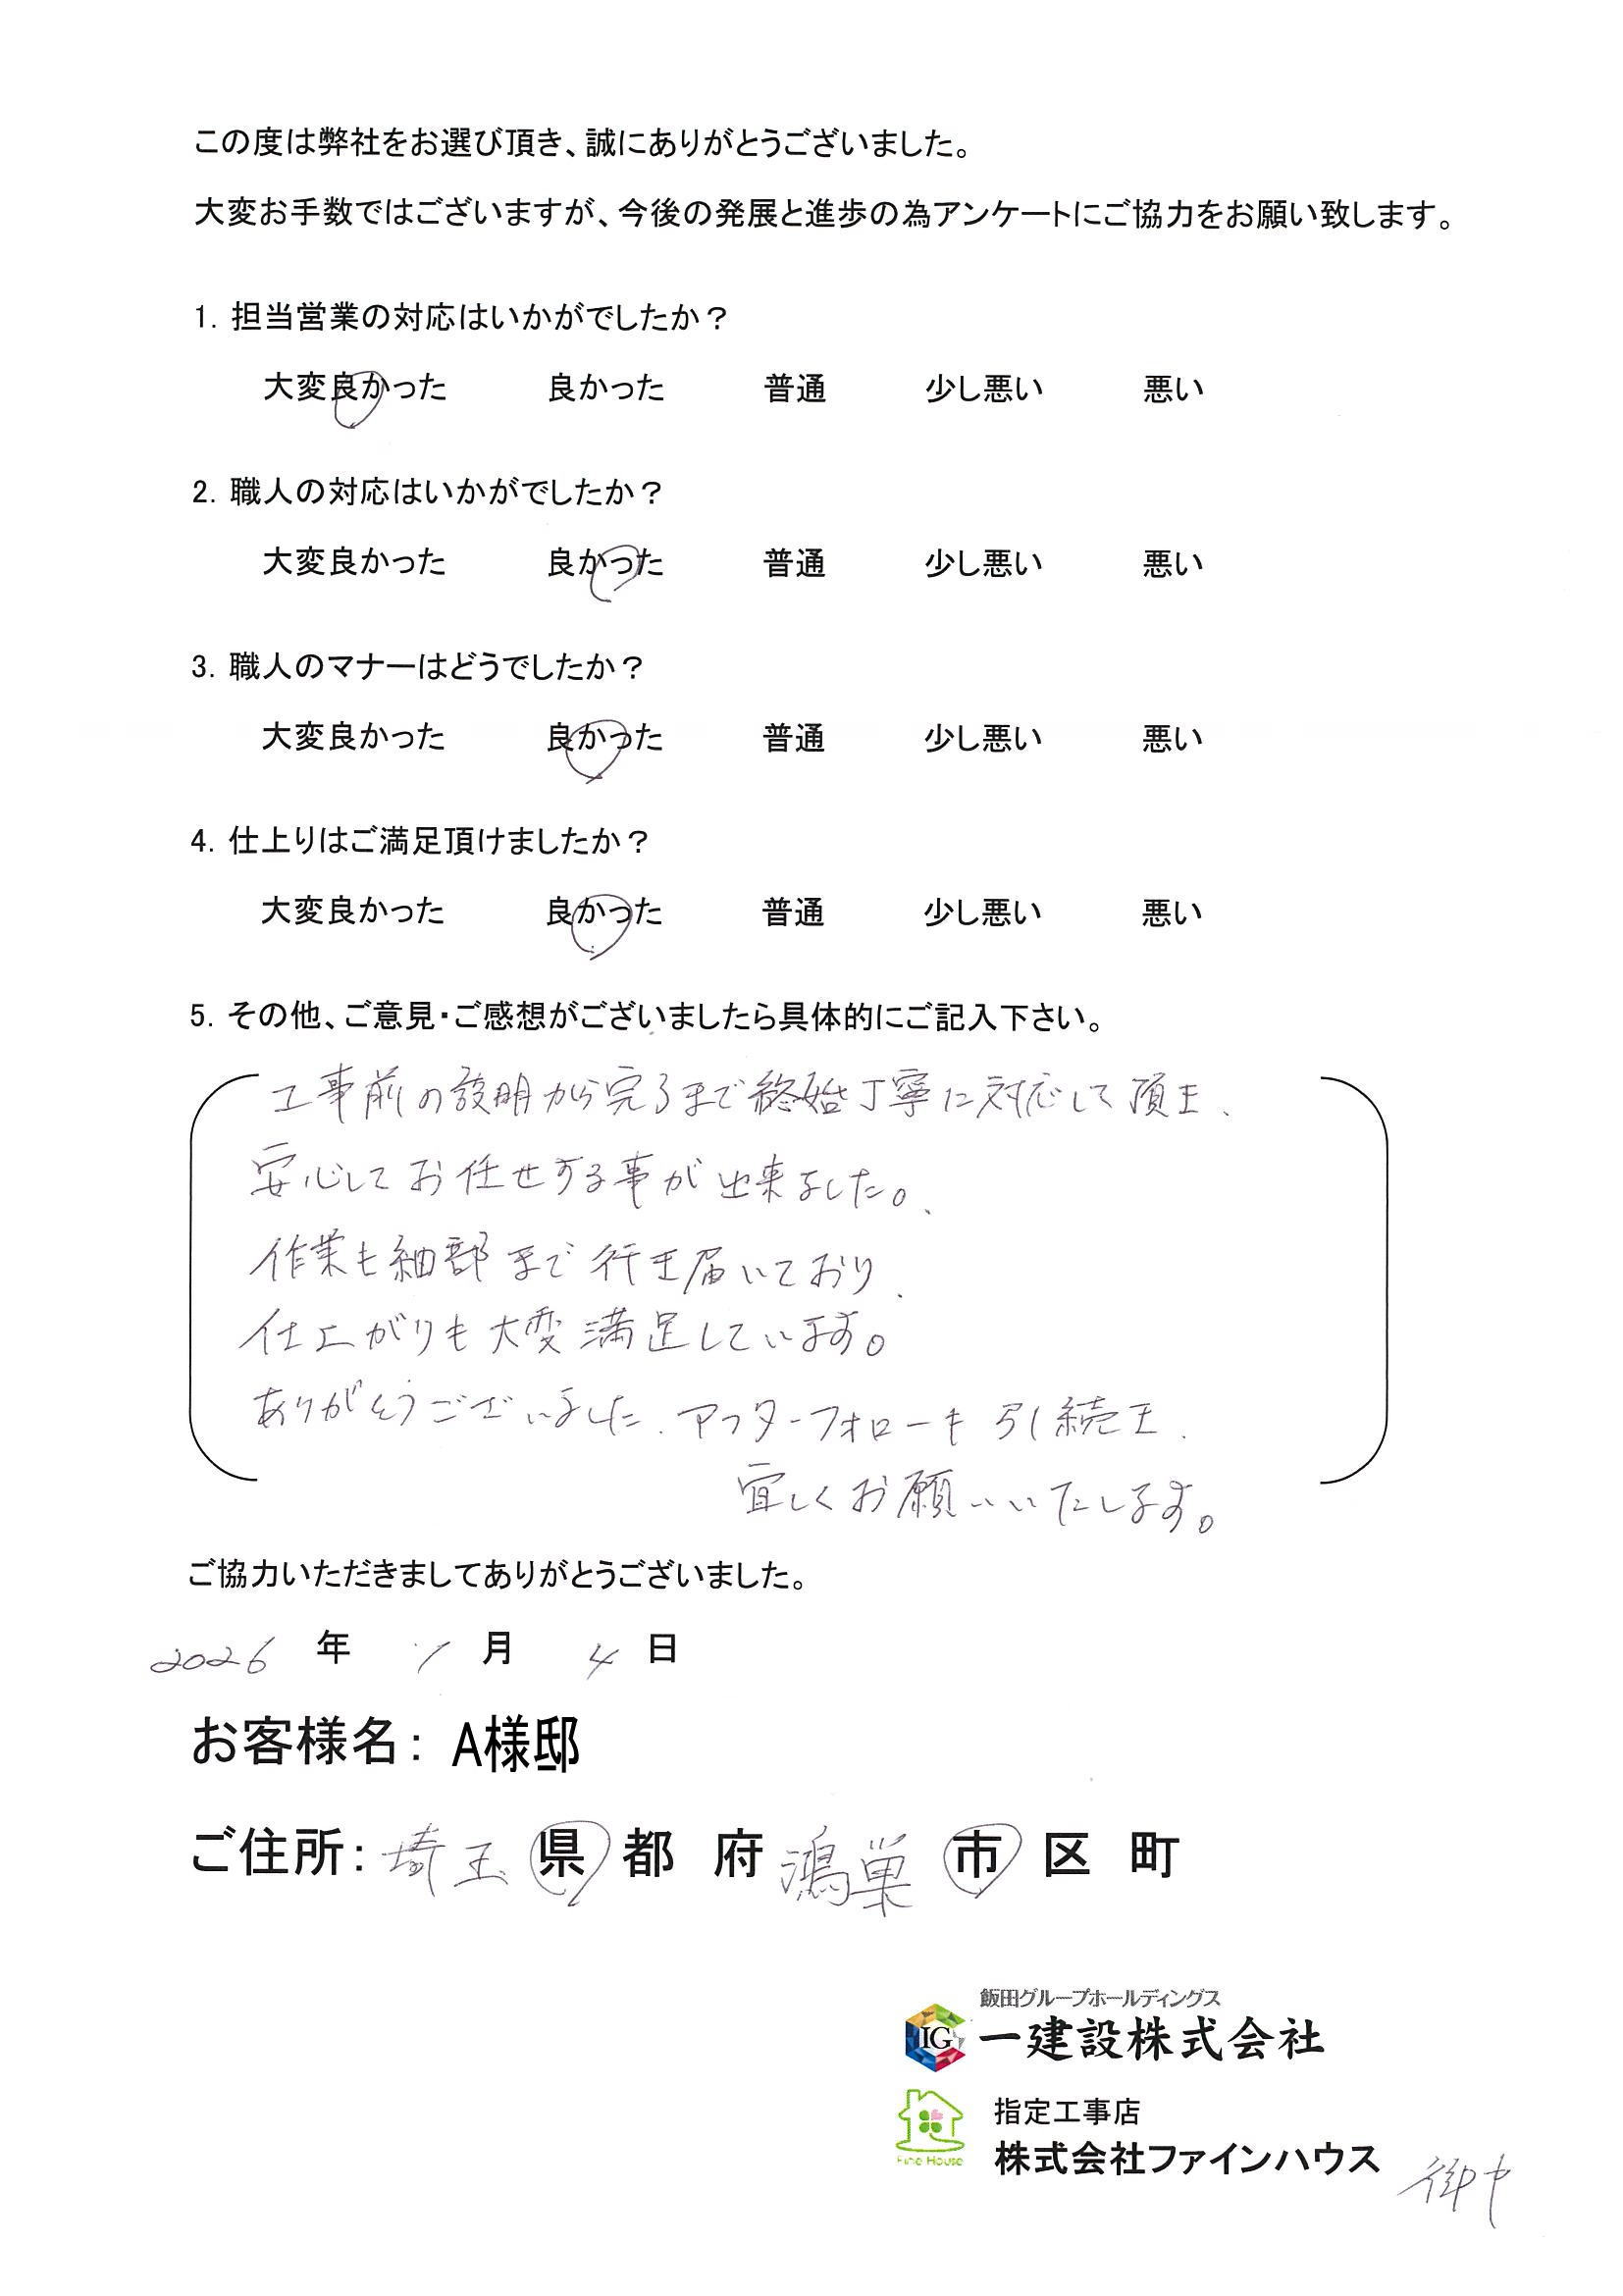 この度は弊社をお選び頂き、誠にありがとうございました。
大変お手数ではございますが、今後の発展と進歩の為アンケートにご協力をお願い致します。
1. 担当営業の対応はいかがでしたか？
大変良かった 良かった 普通 少し悪い 悪い
2. 職人の対応はいかがでしたか？
大変良かった 良かった 普通 少し悪い 悪い
3. 職人のマナーはどうでしたか？
大変良かった 良かった 普通 少し悪い 悪い
4. 仕上りはご満足頂けましたか？
大変良かった 良かった 普通 少し悪い 悪い
5. その他、ご意見・ご感想がございましたら具体的にご記入下さい。
工事前の説明から完了まで終始丁寧に対応して頂き、
安心してお任せする事が出来ました。
作業も細部まで行き届いており、
仕上がりも大変満足しています。
ありがとうございました、アフターフォローも引続き、
宜しくお願いいたします。
ご協力いただきましてありがとうございました。
2026 年 1 月 4 日
お客様名： A様邸
ご住所： 埼玉 県 都 府 鴻巣 市 区 町
飯田グループホールディングス
IG 一建設株式会社
指定工事店
Fine House 株式会社ファインハウス 御中